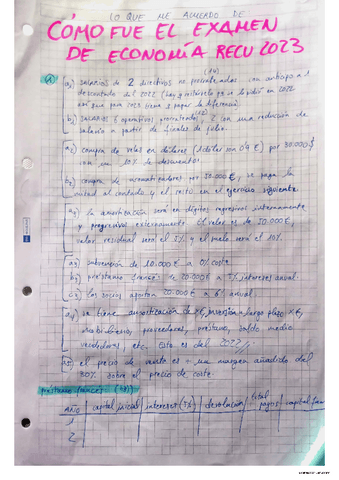 LO QUE ME ACUERDO DE
CÓMO FUE EL EXAMEN
DE ECONOMÍA RECU 2023
a1) salarios de 2 directivos no prorrateados con anticipo a 1
descontado del 2022
así que para 2023 tiene q pagar la diferencia
b1) salarios 6 operativos prorrateados, 2 con una reducción de
salario a partir de finales de julio.
a2) compra de velas en dólares (1 dólar son 0'9 €) por 30.000$
con un 10% de descuento.
b2) compra de aromatizadores por 50.000€, se paga la
mitad al contado y el resto en el ejercicio siguiente
a3) la amortización será en dígitos regresivos internamente
y progresivo externamente. El valor es de 50.000€,
valor residual será el 5% y el será el 10%.
a4) subvención de 10.000 € a 0% coste
b4) préstamo francés de 20.000€ a 5% interés anual.
c4) los socios aportan 20.000€ a 6% anual.
se tiene amortización de X€, inversión a largo plazo X€,
mobiliario, proveedores, préstamo, saldo medio
vendedores, etc. Esto es del 2022
a5) el precio de venta es + un margen añadido del
30% sobre el precio de coste.
préstamo francés (b4)
AÑO capital inicial intereses (5%) devolución total pagos capital final
1
2